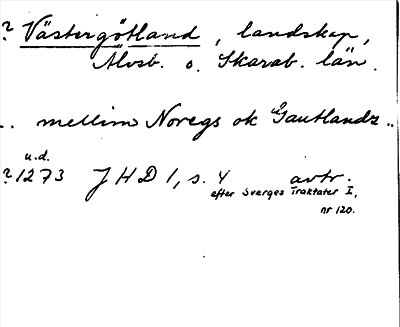 ? Västergötland, landskap,
Älvsb. o. Skarab. län.
.. mellim Noregs ok Gautlandz ..
u.d.
?1273 JHD 1, s. 4 avtr.
efter Sverges Traktater I,
nr 120.